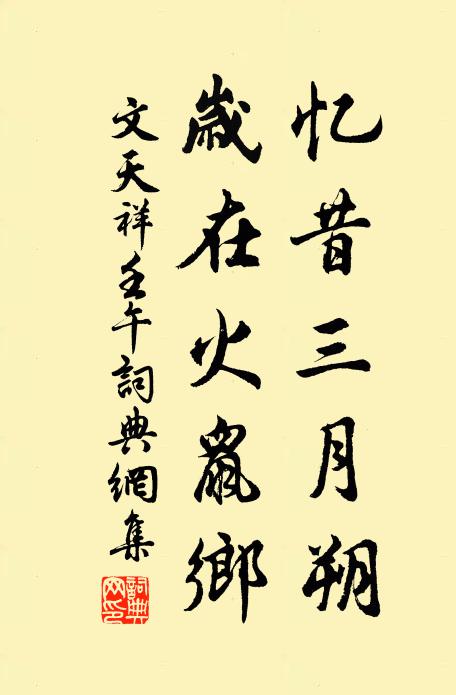 忆昔三月朔
歲在火鼠鄉
文天祥壬午詞典網集
詞典网印